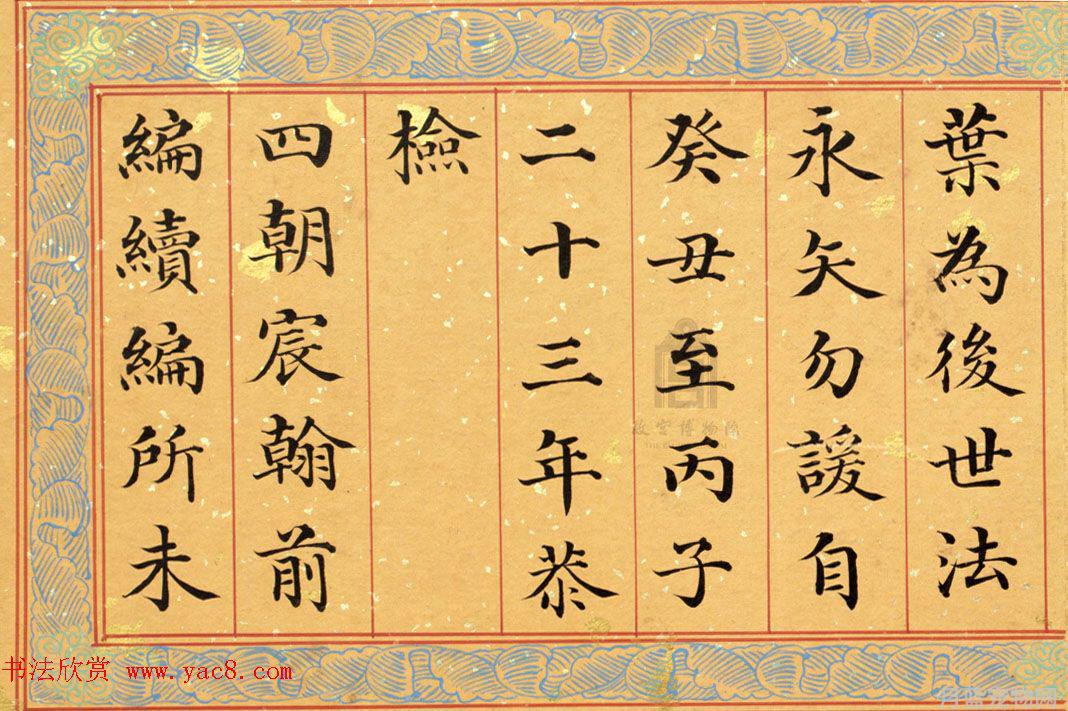 葉為後世法
永矢勿諼自
癸丑至丙子
二十三年恭
檢
四朝宸翰前
編續編所未
故宮博物院
书法欣赏 www.yac8.com